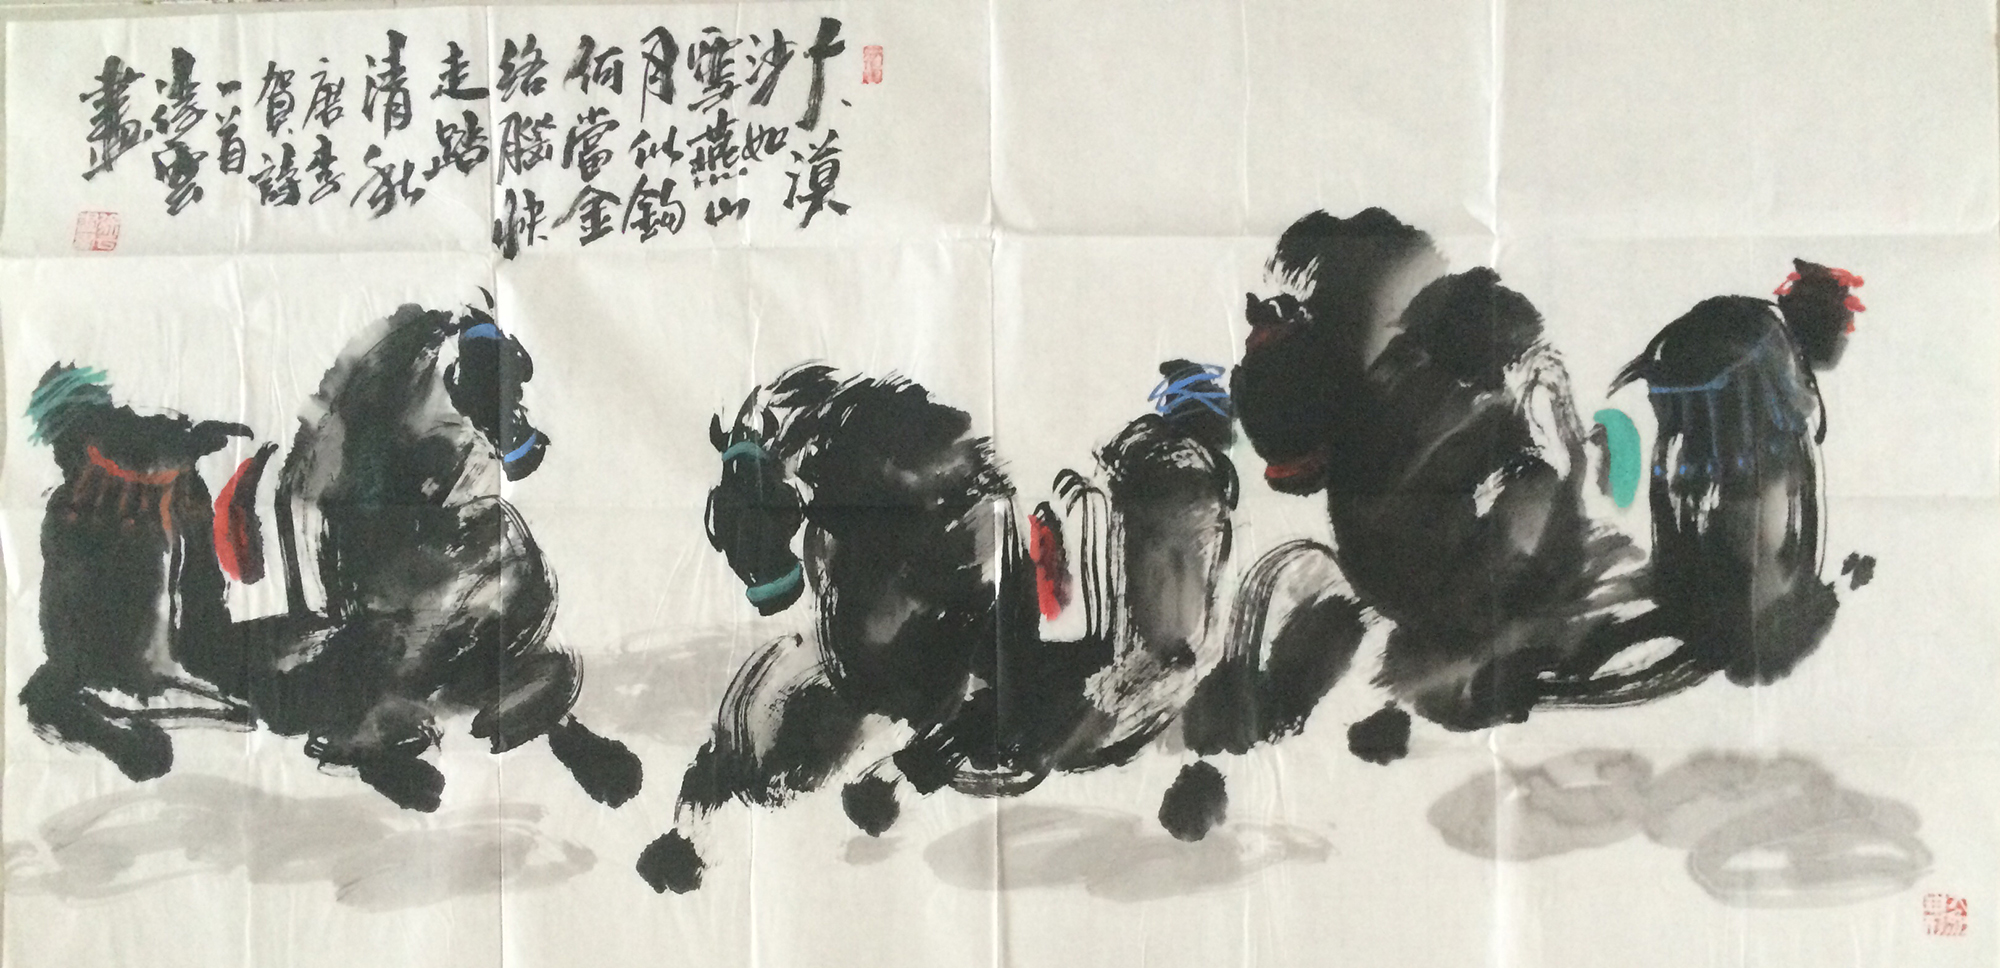 大漠
沙如
雪燕山
月似鉤
何當金
絡腦快
走踏
清秋
唐李
賀詩
一首
雲
畫